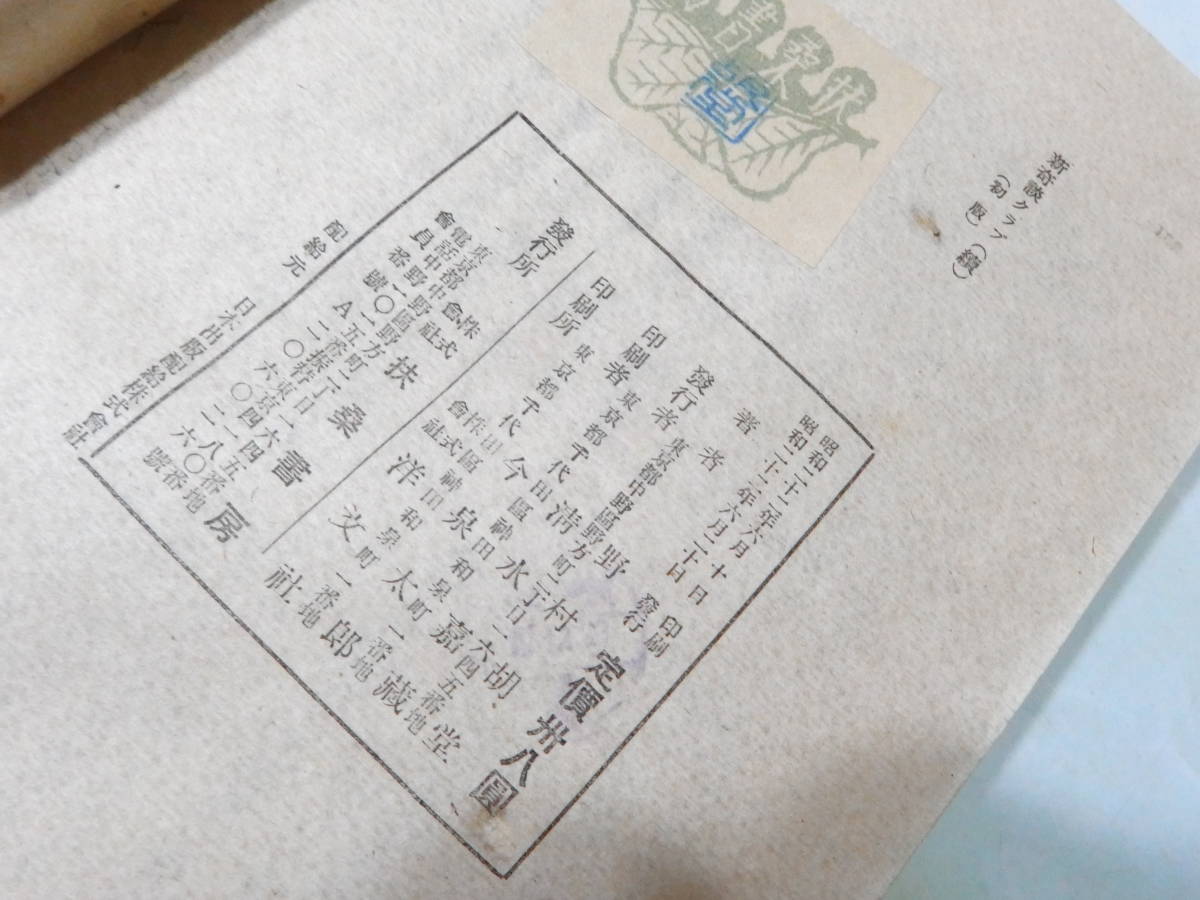 新奇談クラブ(續)
(初版)
扶桑書
昭和二十二年六月十日 印刷
昭和二十二年六月二十日 發行
定價卅八圓
著者 野村胡堂
發行者 東京都中野區野方町二丁目一六四五番地
清水嘉藏
印刷者 東京都千代田區神田和泉町一番地
今泉太郎
印刷所 東京都千代田區神田和泉町一番地
株式會社 洋文社
發行所 株式會社 扶桑書房
東京都中野區野方町二丁目一六四五番地
電話中野
振替東京
會員番號A
配給元 日本出版配給株式會社